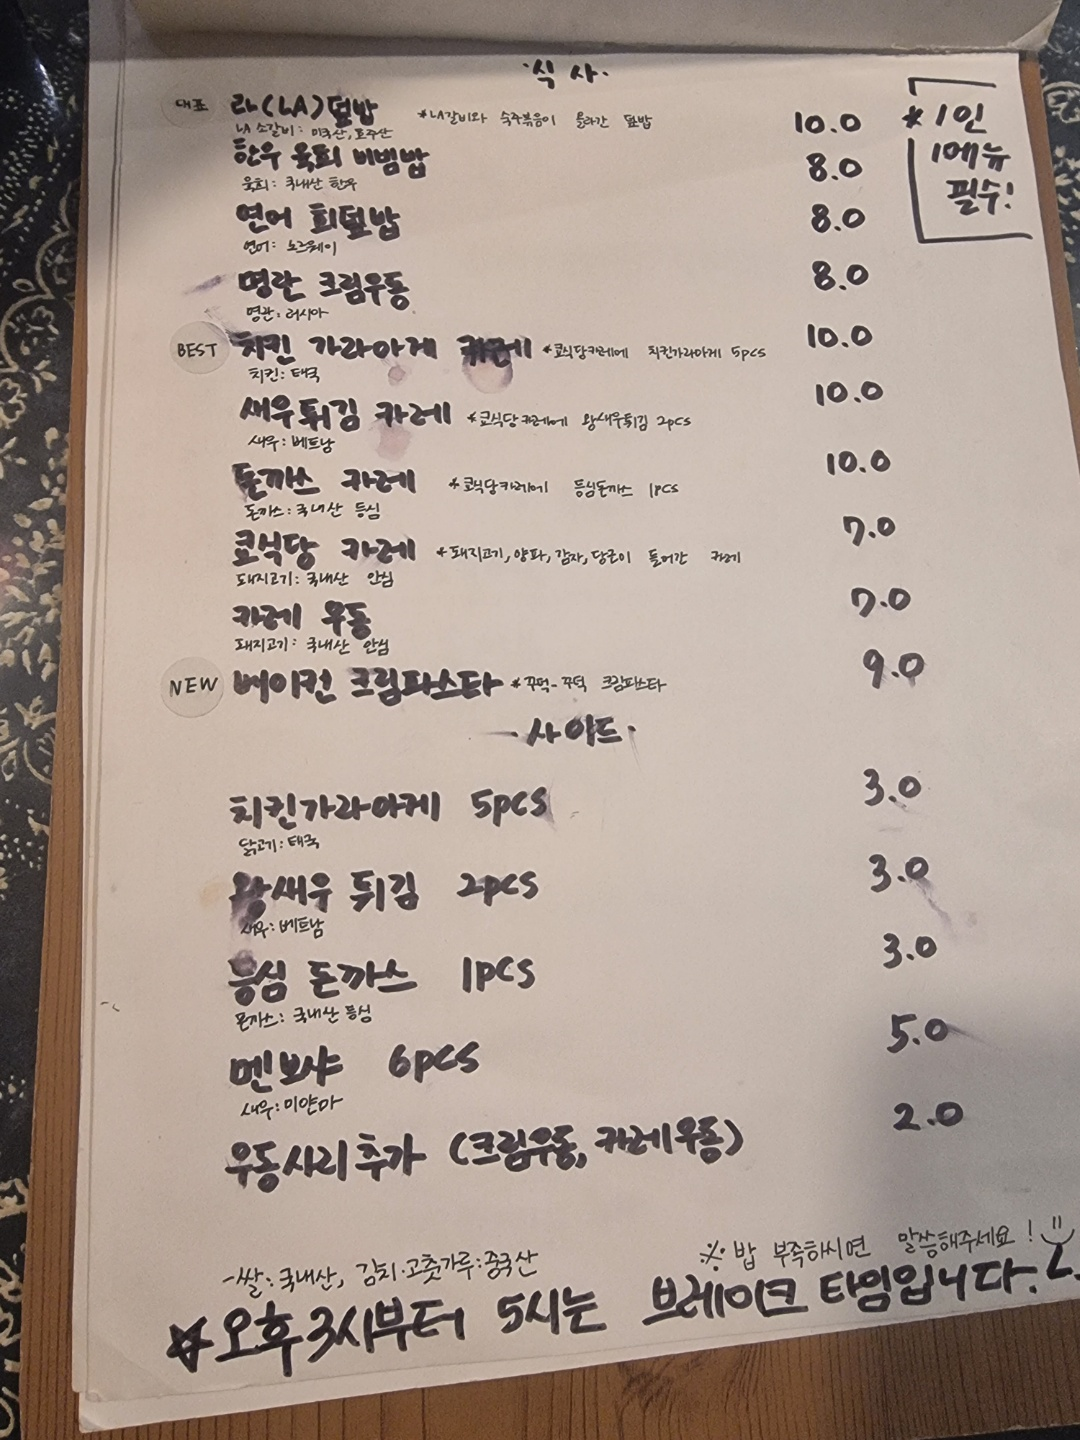 ·식사·
대표 라(LA)덮밥 *LA갈비와 숙주볶음이 올라간 덮밥 10.0
LA 소갈비: 미국산, 호주산
*1인
1메뉴
필수!
한우 육회 비빔밥 8.0
육회: 국내산 한우
연어 회덮밥 8.0
연어: 노르웨이
명란 크림우동 8.0
명란: 러시아
BEST 치킨 가라아게 카레 *코식당카레에 치킨가라아게 5pcs 10.0
치킨: 태국
새우튀김 카레 *코식당카레에 왕새우튀김 2pcs 10.0
새우: 베트남
돈까스 카레 *코식당카레에 등심돈까스 1pcs 10.0
돈까스: 국내산 등심
코식당 카레 *돼지고기, 양파, 감자, 당근이 들어간 카레 7.0
돼지고기: 국내산 안심
카레 우동 7.0
돼지고기: 국내산 안심
NEW 베이컨 크림파스타 *꾸덕-꾸덕 크림파스타 9.0
-·사이드·
치킨가라아게 5pcs 3.0
닭고기: 태국
왕새우 튀김 2pcs 3.0
새우: 베트남
등심 돈까스 1pcs 3.0
돈까스: 국내산 등심
멘보샤 6pcs 5.0
새우: 미얀마
우동사리추가 (크림우동, 카레우동) 2.0
-쌀: 국내산, 김치·고춧가루: 중국산
※ 밥 부족하시면 말씀해주세요!
☆오후 3시부터 5시는 브레이크 타임입니다.